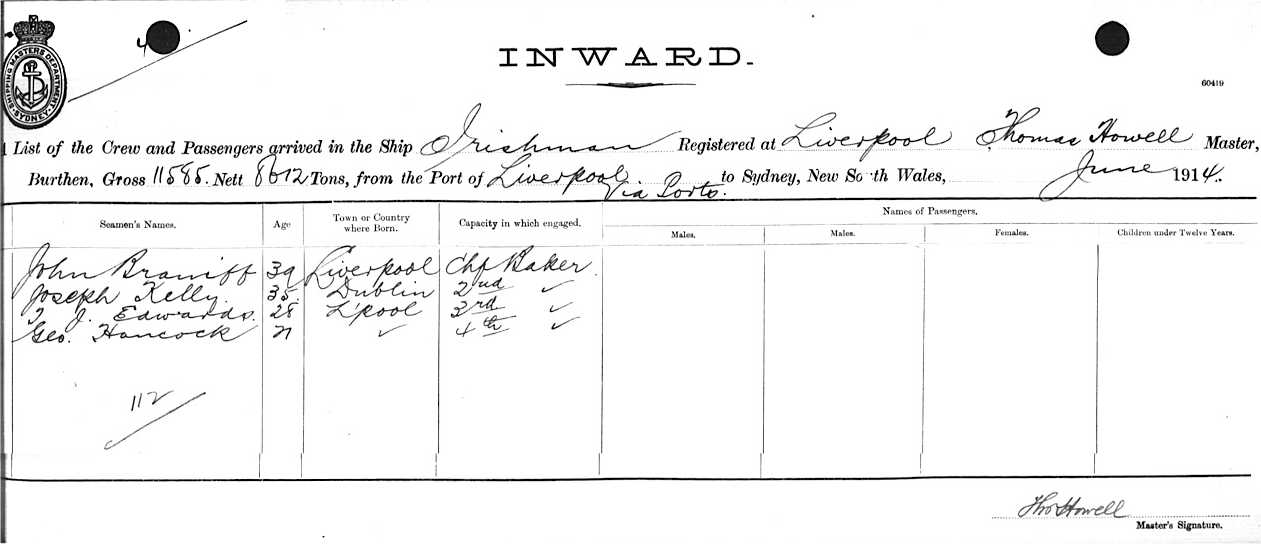 SHIPPING MASTERS DEPARTMENT. SYDNEY.
4
INWARD.
60419
List of the Crew and Passengers arrived in the Ship Irishman Registered at Liverpool Thomas Howell Master,
Burthen, Gross 11585. Nett 8612 Tons, from the Port of Liverpool Via Ports. to Sydney, New South Wales, June 1914.
Seamen's Names. Age Town or Country where Born. Capacity in which engaged. Names of Passengers.
Males. Males. Females. Children under Twelve Years.
John Braniff 39 Liverpool Chf Baker
Joseph Kelly. 35. Dublin 2nd ✓
T J. Edwards. 28 L'pool 3rd ✓
Geo. Hancock 21 ✓ 4th ✓
112
Thos Howell
Master's Signature.